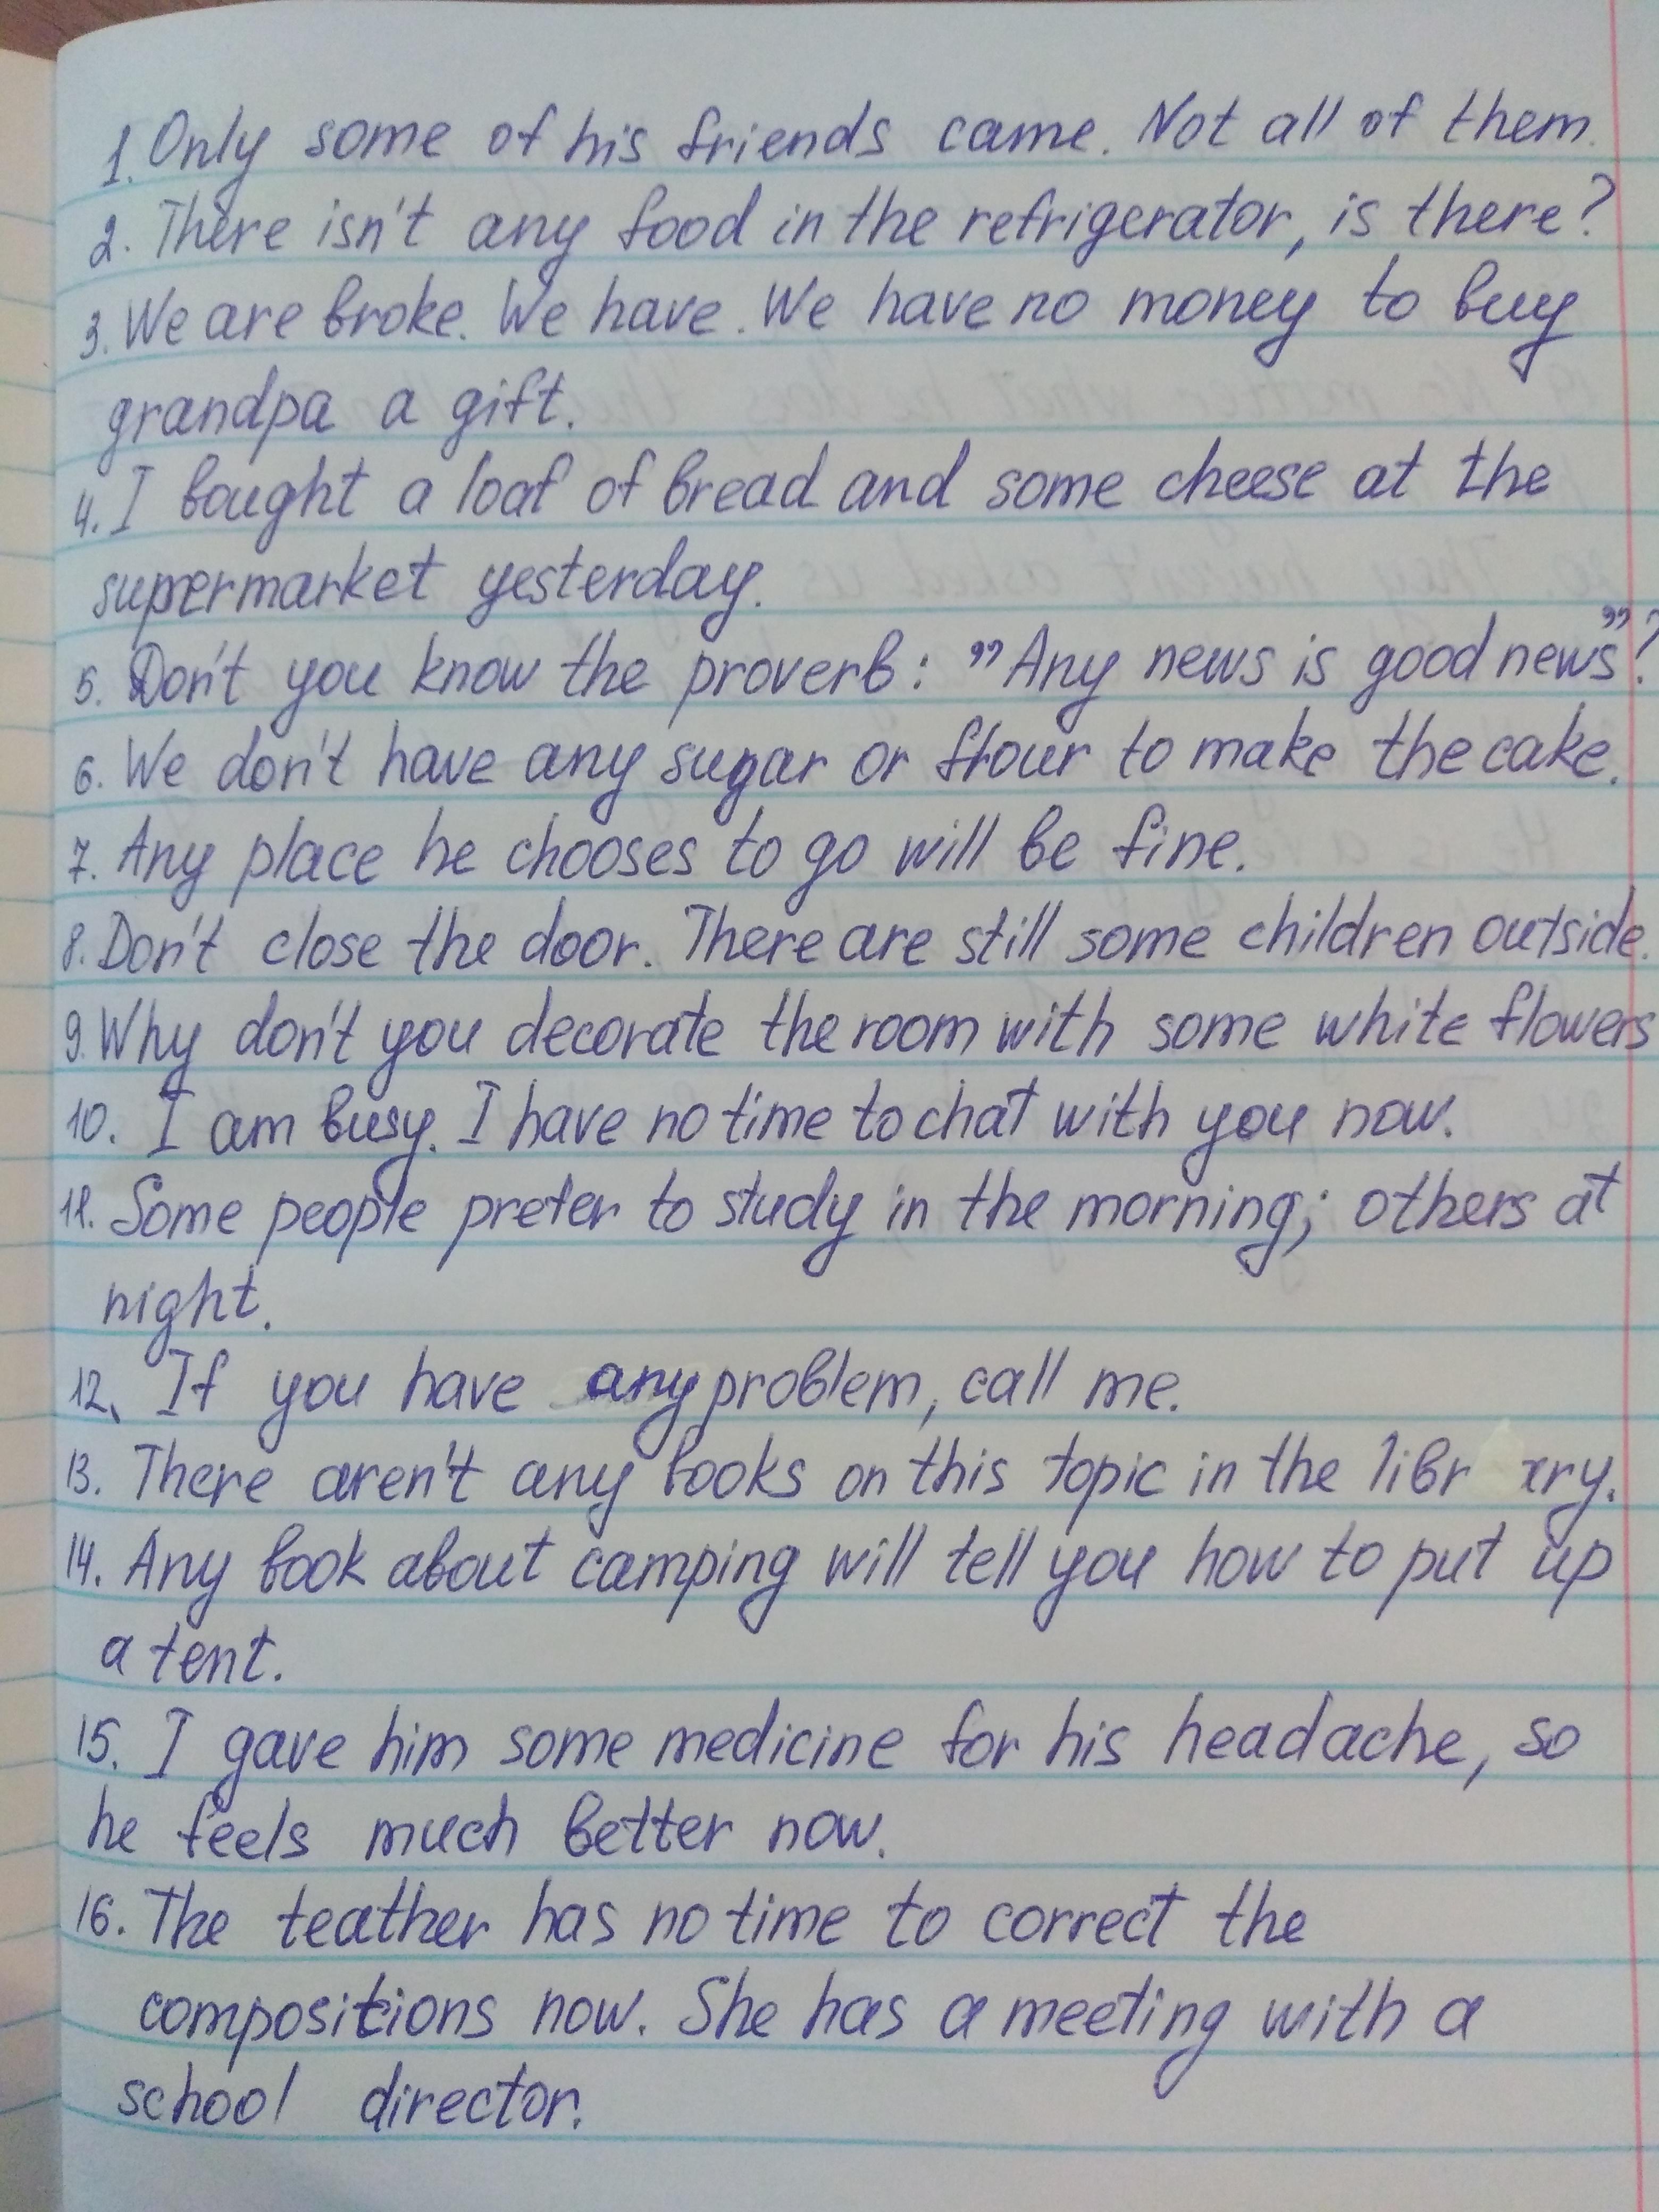 1. Only some of his friends came. Not all of them.
2. There isn't any food in the refrigerator, is there?
3. We are broke. We have. We have no money to buy
grandpa a gift.
4. I bought a loaf of bread and some cheese at the
supermarket yesterday.
5. Don't you know the proverb: "Any news is good news"?
6. We don't have any sugar or flour to make the cake.
7. Any place he chooses to go will be fine.
8. Don't close the door. There are still some children outside.
9. Why don't you decorate the room with some white flowers
10. I am busy. I have no time to chat with you now.
11. Some people prefer to study in the morning; others at
night.
12. If you have any problem, call me.
13. There aren't any books on this topic in the library.
14. Any book about camping will tell you how to put up
a tent.
15. I gave him some medicine for his headache, so
he feels much better now.
16. The teather has no time to correct the
compositions now. She has a meeting with a
school director.